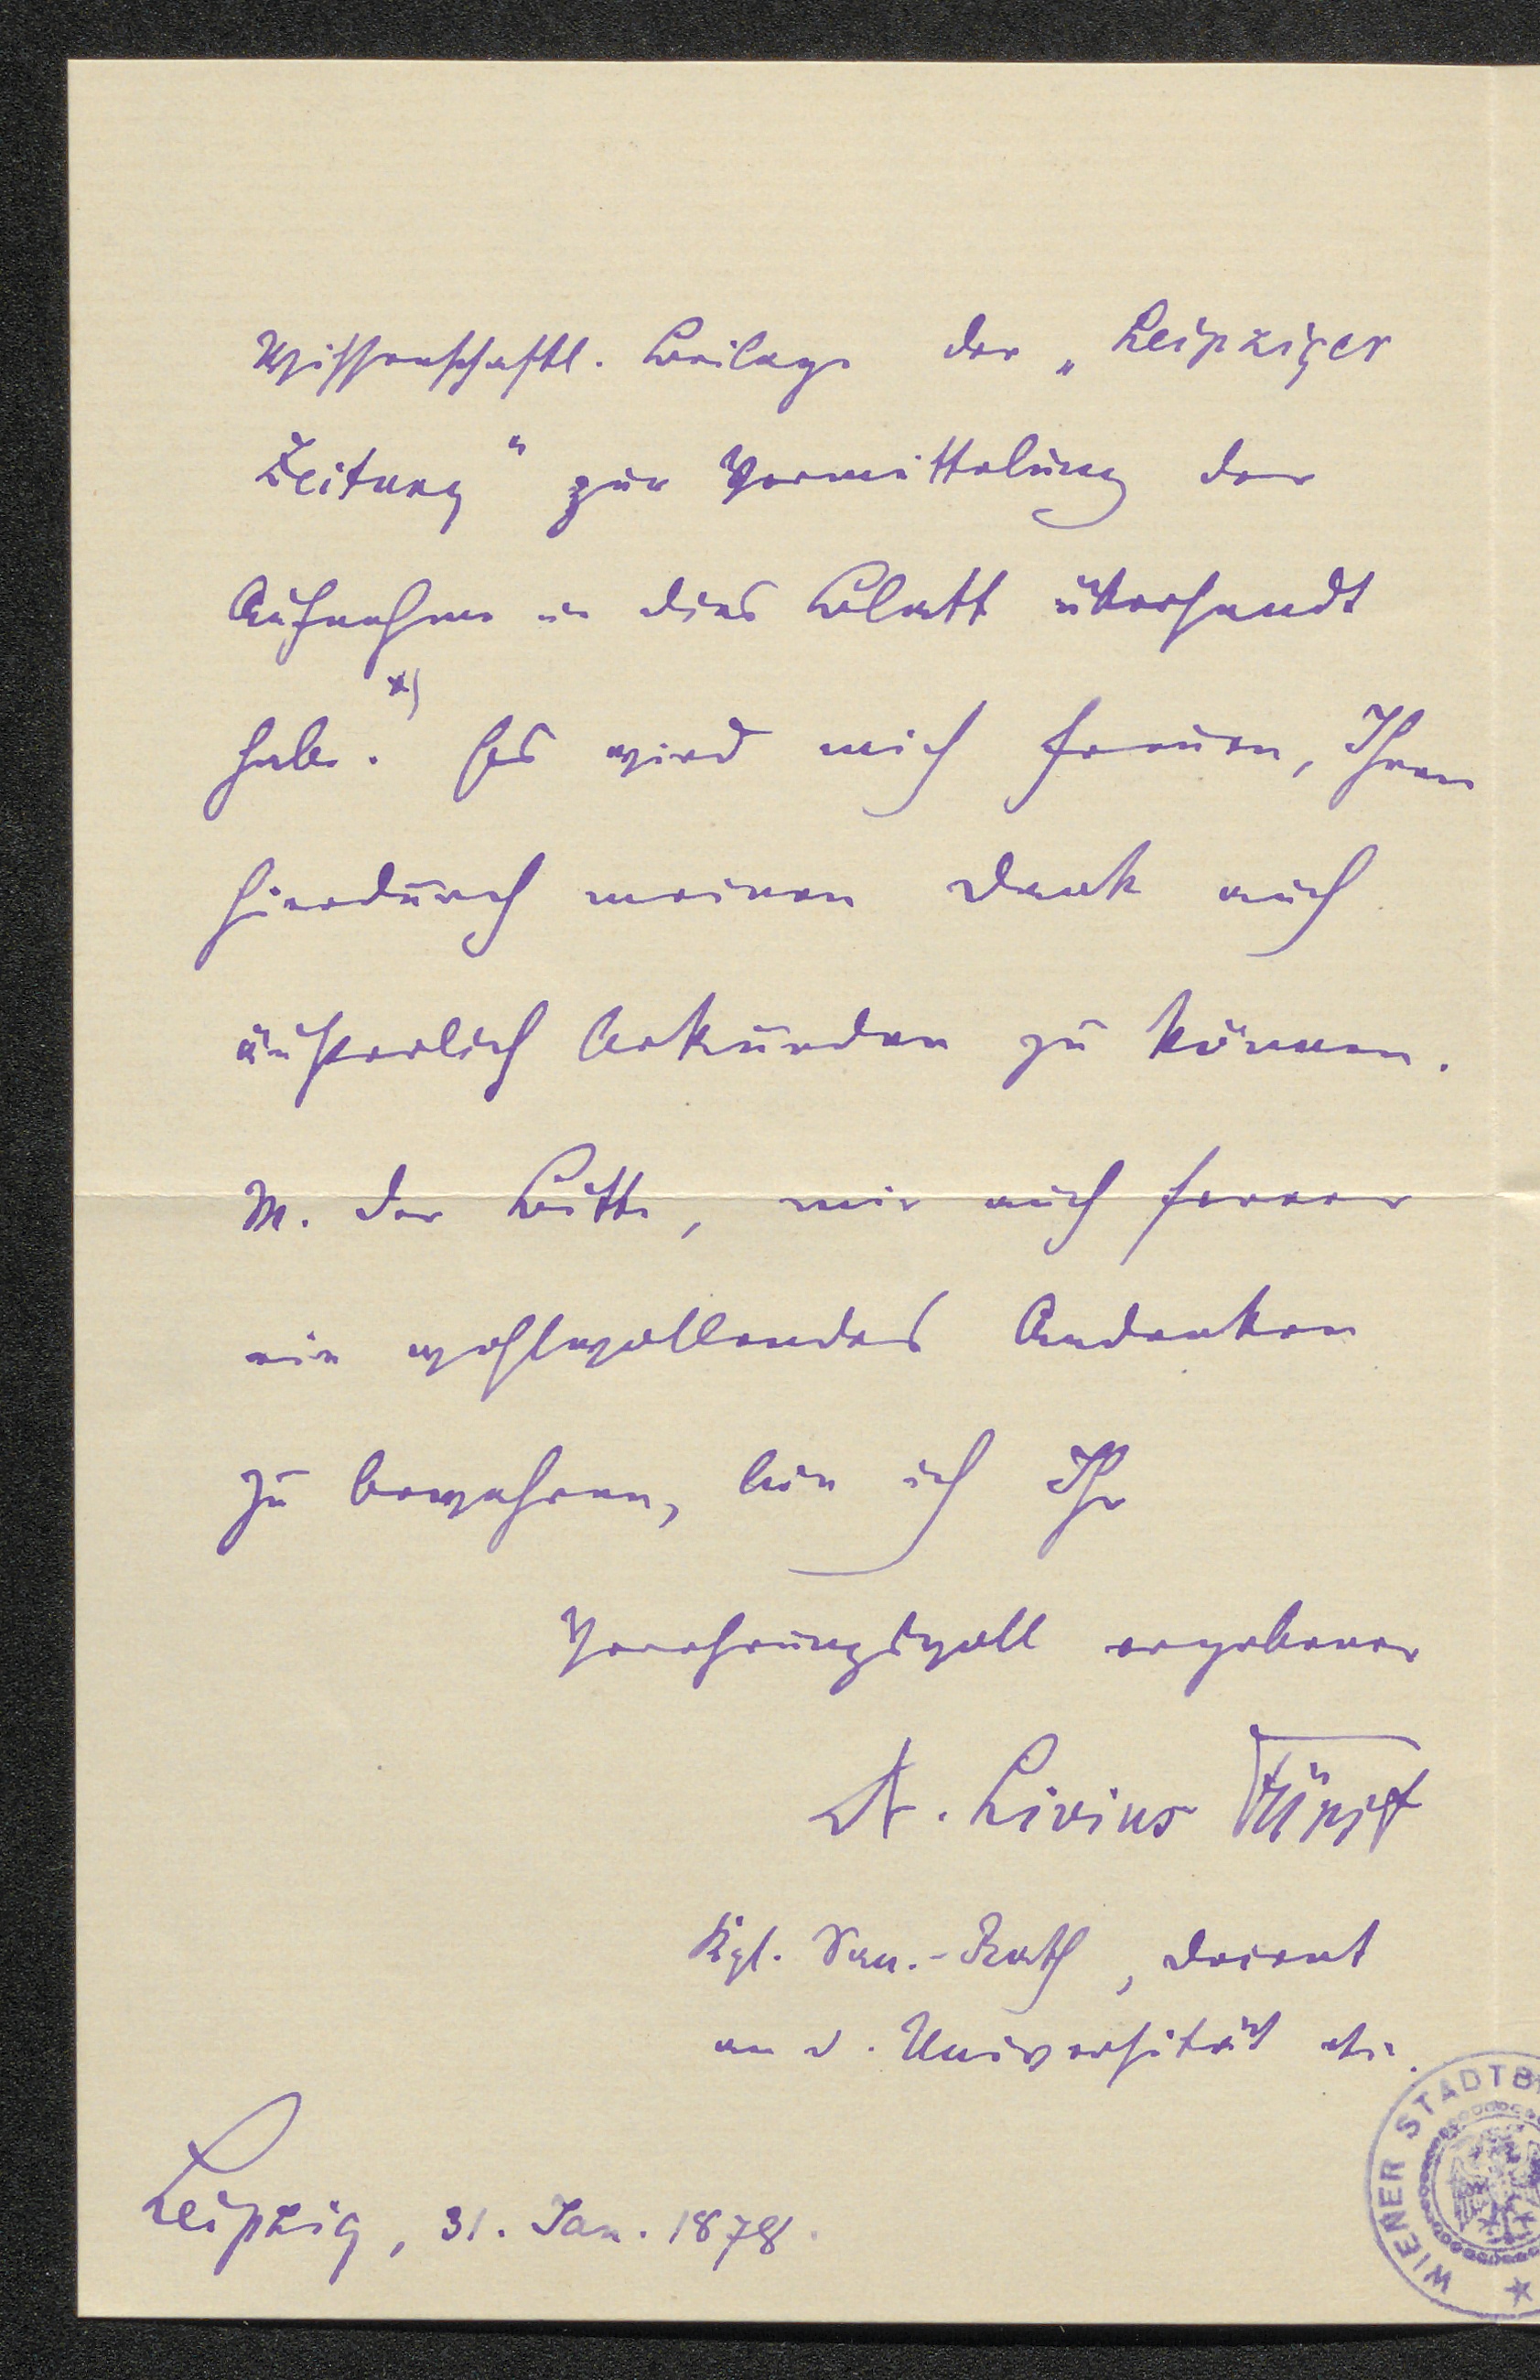 Wissenschaftl. Beilage der „Leipziger
Zeitung“ zur Vermittelung der
Aufnahme in dies Blatt übersandt
habe.*) Es wird mich freuen, Ihnen
hierdurch meinen Dank auch
äußerlich bekunden zu können.
M. der Bitte, mir auch ferner
ein wohlwollendes Andenken
zu bewahren, bin ich Ihr
Verehrungsvoll ergebener
Dr. Livius Fürst
Kgl. San.-Rath, Docent
an d. Universität etc.
Leipzig, 31. Jan. 1878.
WIENER STADTB